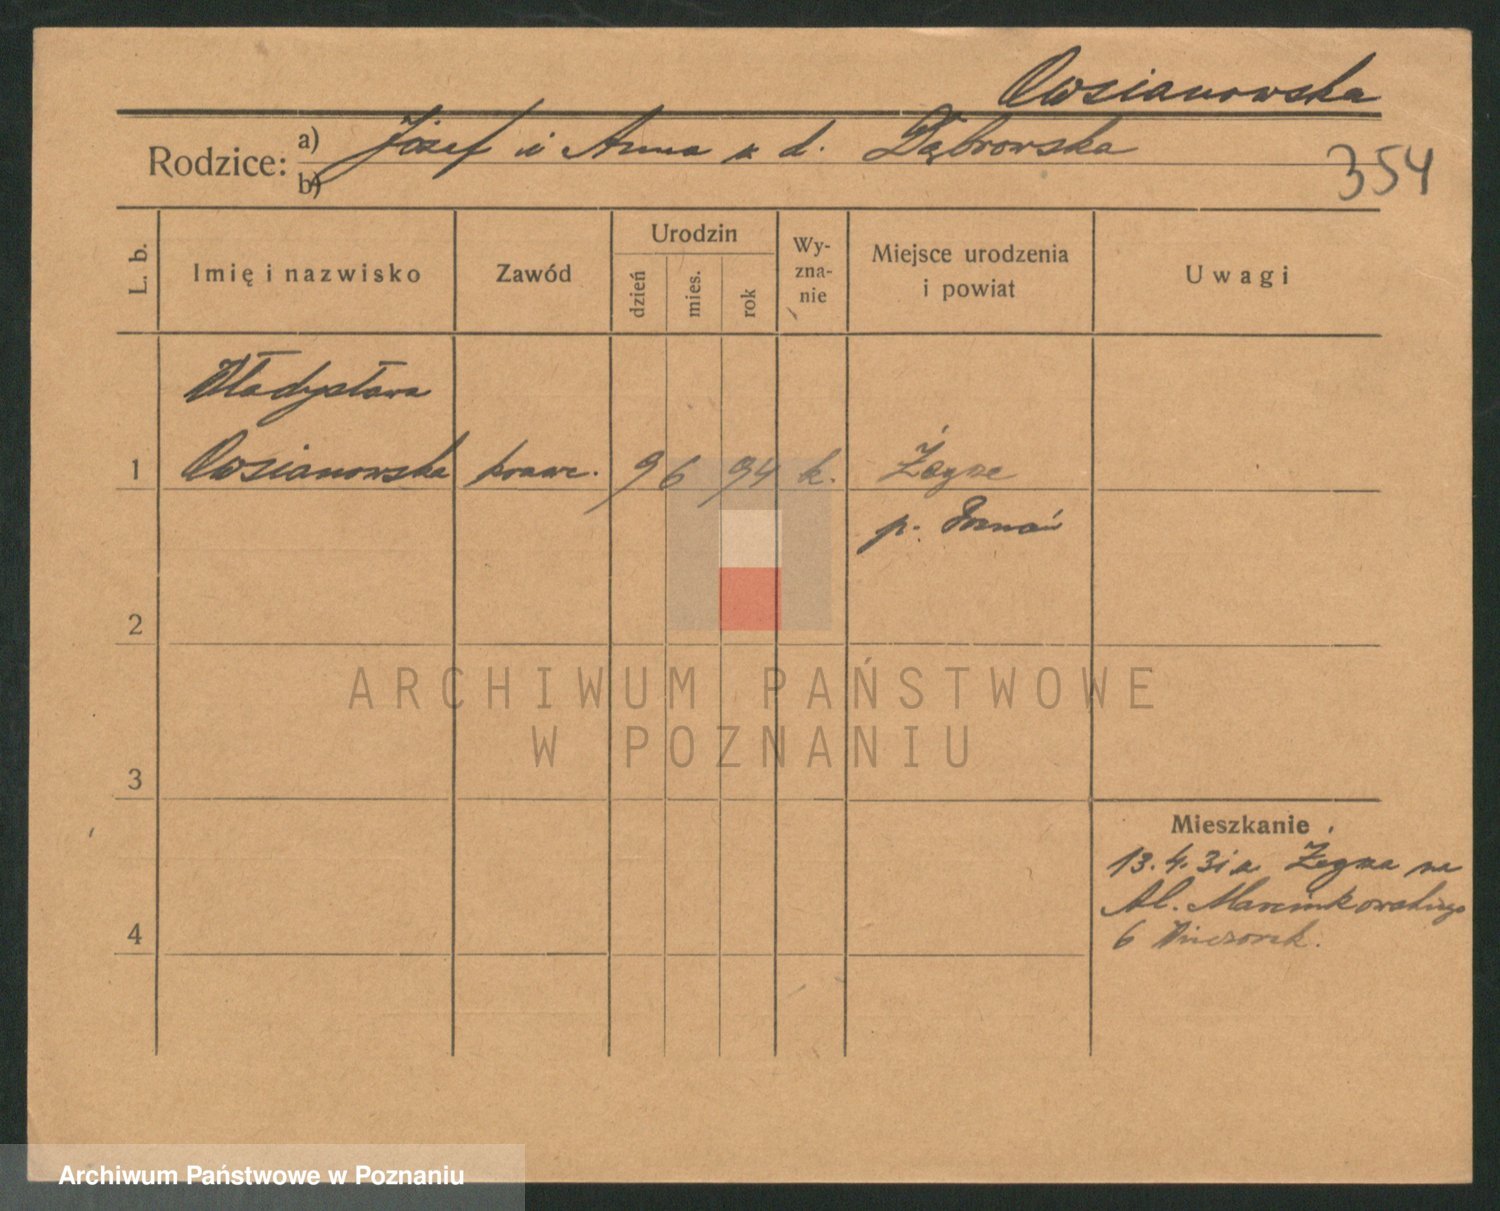 Owsianowska
Rodzice: a) Józef i Anna z d. Dąbrowska
b)
354
L. b.
Imię i nazwisko
Zawód
Urodzin
dzień
mies.
rok
Wy-
zna-
nie
Miejsce urodzenia
i powiat
Uwagi
Władysława
1 Owsianowska krawc. 9 6 94 k. Żegrze
p. Poznań
2
3
4
Mieszkanie
13.4.31 z Żegrza na
Al. Marcinkowskiego
6 Wieczorek.
ARCHIWUM PAŃSTWOWE
W POZNANIU
Archiwum Państwowe w Poznaniu